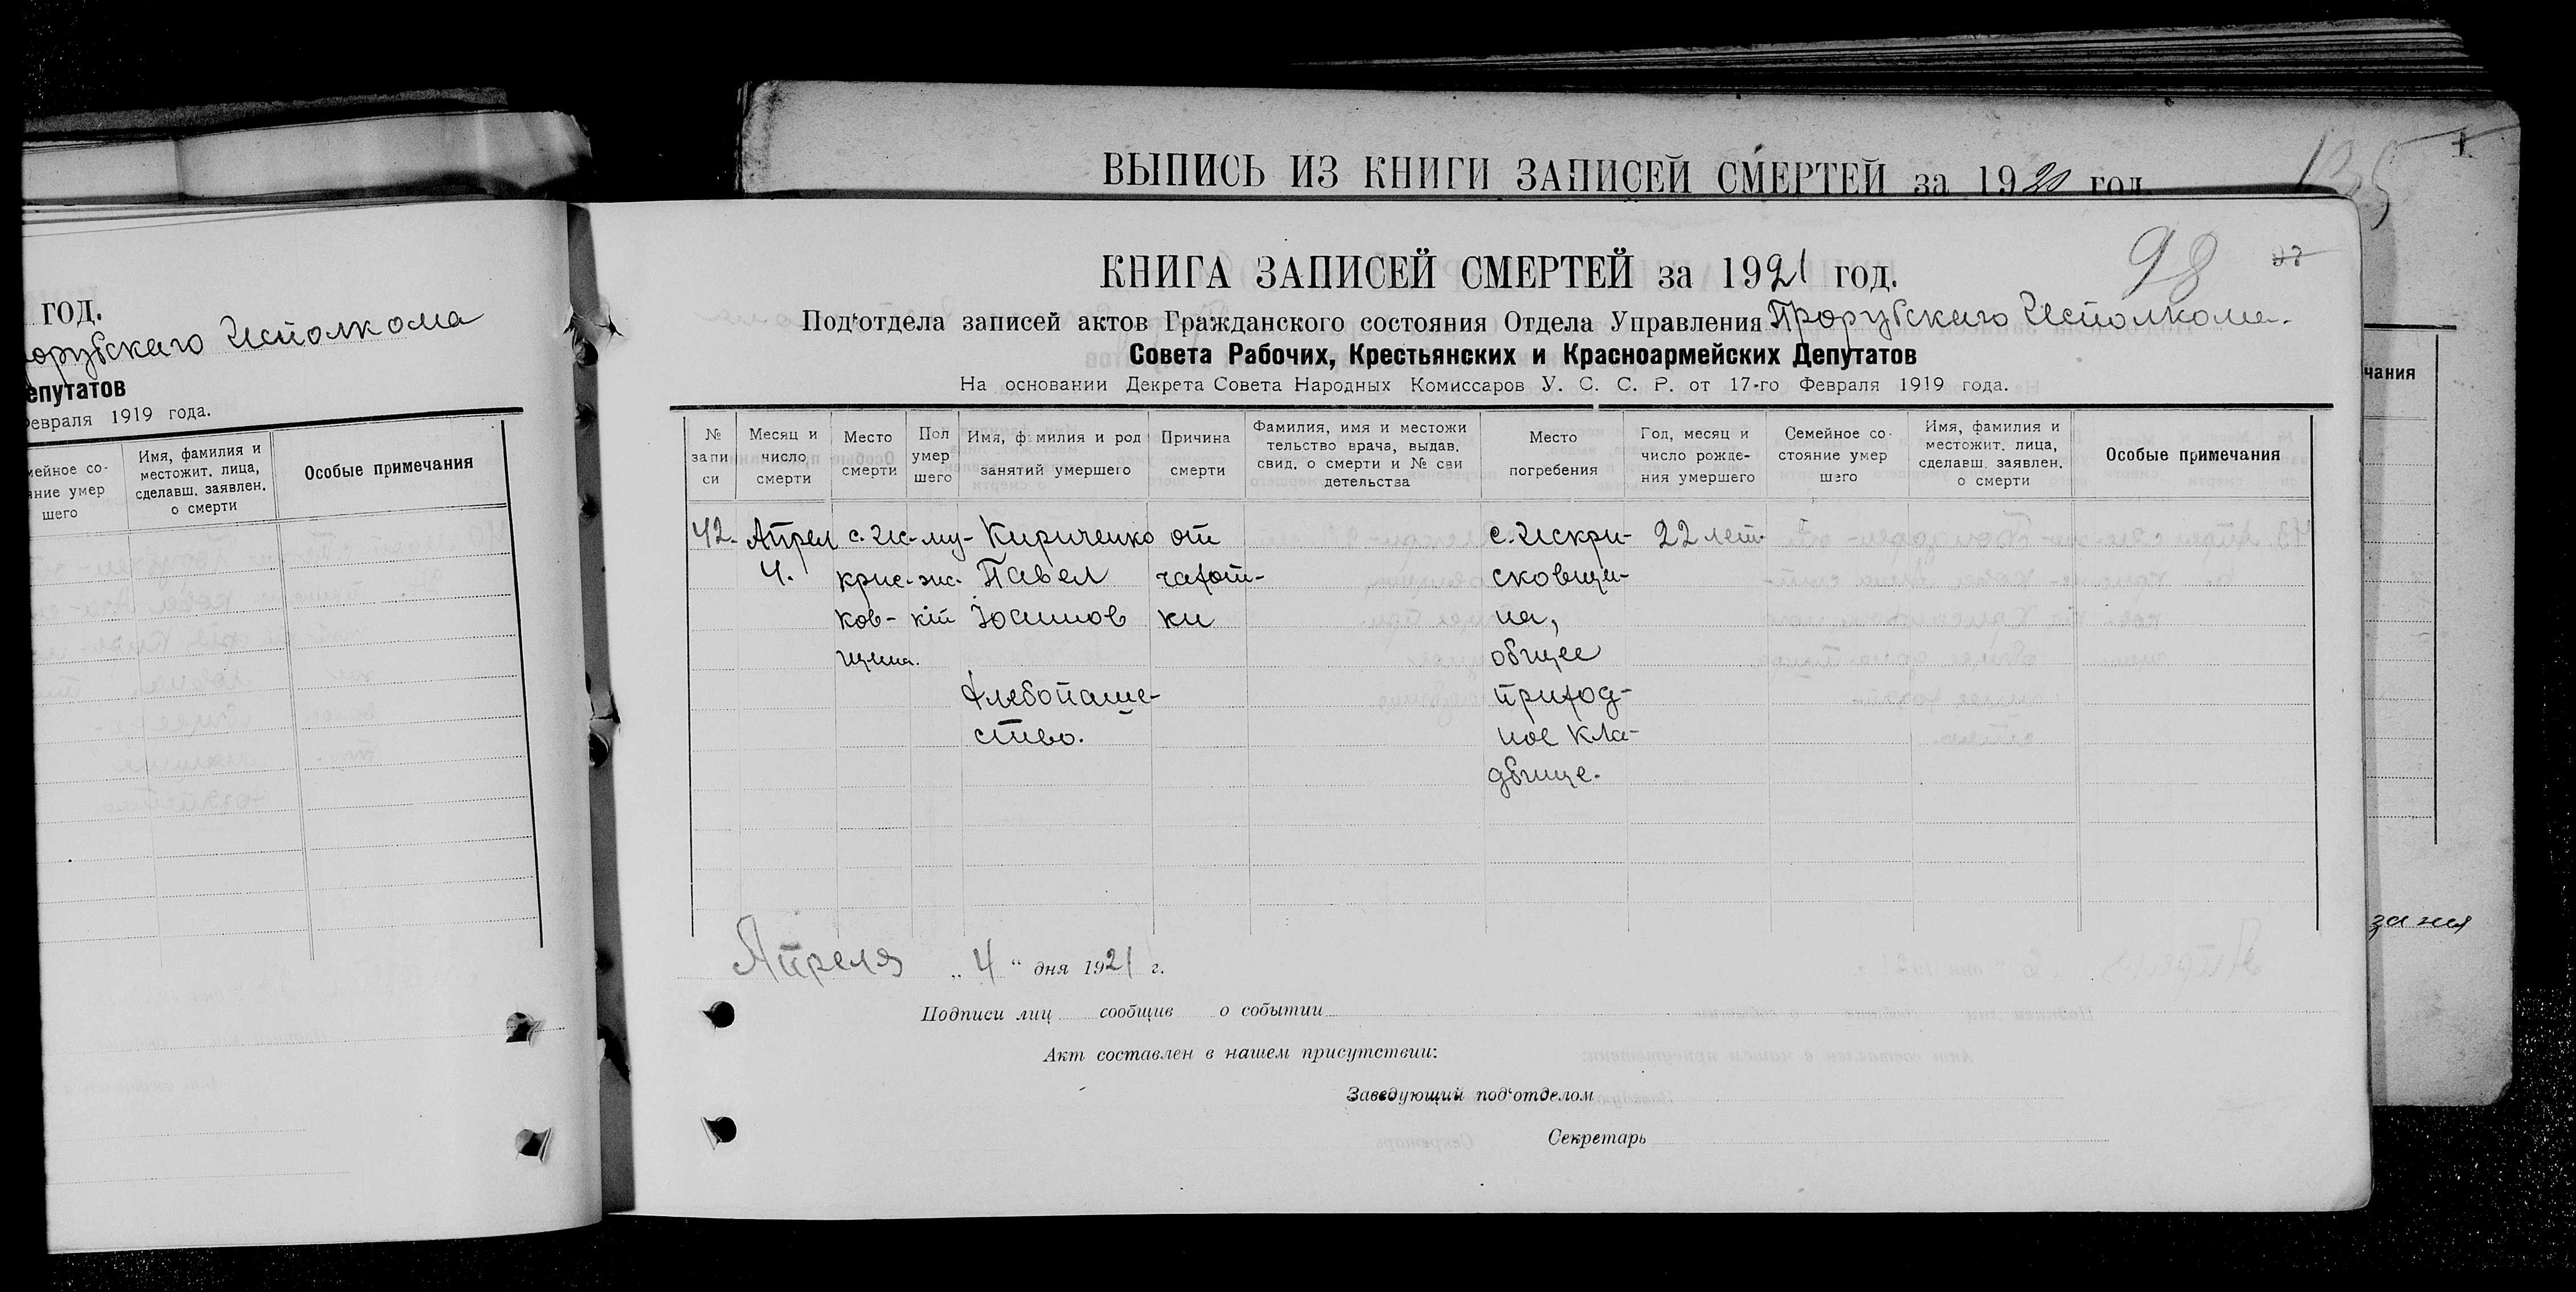 ВЫПИСЬ ИЗ КНИГИ ЗАПИСЕЙ СМЕРТЕЙ за 1920 год
135
1.
год.
Исполкома
епутатов
евраля 1919 года.
мейное со-
яние умер
шего
Имя, фамилия и
местожит. лица,
сделавш. заявлен.
о смерти
Особые примечания
98
КНИГА ЗАПИСЕЙ СМЕРТЕЙ за 1921 год.
Под'отдела записей актов Гражданского состояния Отдела Управления Прорубскаго Исполкома.
Совета Рабочих, Крестьянских и Красноармейских Депутатов
На основании Декрета Совета Народных Комиссаров У. С. С. Р. от 17-го Февраля 1919 года.
№
запи
си
Месяц и
число
смерти
Место
смерти
Пол
умер
шего
Имя, фамилия и род
занятий умершего
Причина
смерти
Фамилия, имя и местожи
тельство врача, выдав.
свид. о смерти и № сви
детельства
Место
погребения
Год, месяц и
число рожде-
ния умершего
Семейное со-
стояние умер
шего
Имя, фамилия и
местожит. лица,
сделавш. заявлен.
о смерти
Особые примечания
42.
Апрел
4.
с. Ис-
крис-
ков-
щина.
му-
жс-
кій
Кириченко
Павел
Хлебопаше-
ство.
от
чахот-
ки
с. Искри-
сковщи-
на,
общее
приход-
ное кла-
дбище.
22 лет
Апреля „ 4 " дня 1921 г.
Подписи лиц сообщив о событии
Акт составлен в нашем присутствии:
Заведующий под'отделом
Секретарь
чания
зания